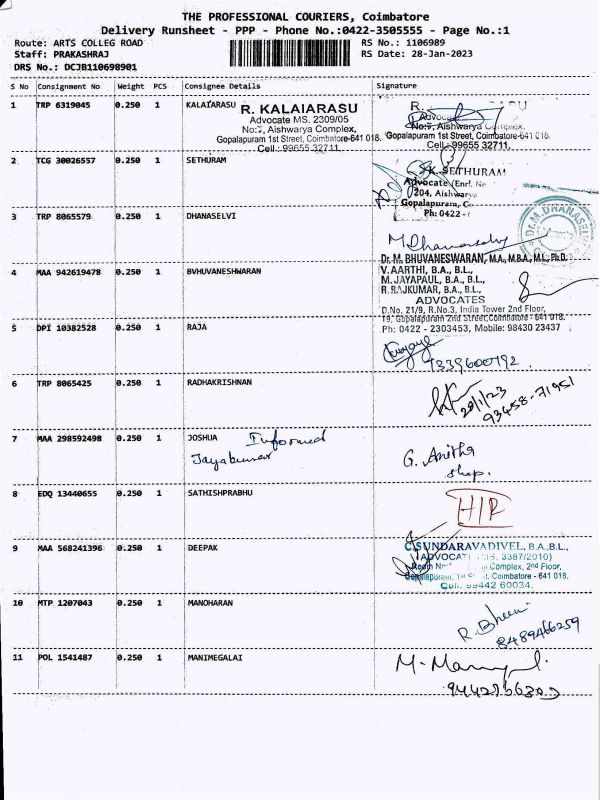 THE PROFESSIONAL COURIERS, Coimbatore
Delivery Runsheet - PPP - Phone No.:0422-3505555 - Page No.:1
Route: ARTS COLLEG ROAD
RS No.: 1106989
Staff: PRAKASHRAJ
RS Date: 28-Jan-2023
DRS No.: DCJB110698901
S No Consignment No Weight PCS Consignee Details Signature
1 TRP 6319045 0.250 1 KALAIARASU
R. KALAIARASU
Advocate MS. 2309/05
No:7, Aishwarya Complex,
Gopalapuram 1st Street, Coimbatore-641 018.
Cell : 99655 32711.
R.
Advoca
No:7, Aishwarya Complex,
Gopalapuram 1st Street, Coimbatore-641 018.
Cell : 99655 32711.
2 TCG 30026557 0.250 1 SETHURAM
K. SETHURAM
Advocate (Enrl. No
204, Aishwarya
Gopalapuram, C
Ph: 0422 -
3 TRP 8065579 0.250 1 DHANASELVI
M Dhanaselvi
Dr. M. DHANASELVI
4 MAA 942619478 0.250 1 BVHUVANESHWARAN
Dr. M. BHUVANESWARAN, M.A., M.B.A., M.L., Ph.D.
V. AARTHI, B.A., B.L.,
M. JAYAPAUL, B.A., B.L.,
R. RAJKUMAR, B.A., B.L.,
ADVOCATES
D.No. 21/9, R.No.3, India Tower 2nd Floor,
19, Gopalapuram 2nd Street, Coimbatore - 641 018.
Ph: 0422 - 2303453, Mobile: 98430 23437
5 DPI 10382528 0.250 1 RAJA
9339600792
6 TRP 8065425 0.250 1 RADHAKRISHNAN
28/1/23
93458-71951
7 MAA 298592498 0.250 1 JOSHUA Informed
Jayakumar
G. Anitha
shop.
8 EDQ 13440655 0.250 1 SATHISHPRABHU
H/R
9 MAA 568241396 0.250 1 DEEPAK
C. SUNDARAVADIVEL, B.A., B.L.,
(ADVOCAT MS. 3387/2010)
Complex, 2nd Floor,
Gopalapuram, 1st St, Coimbatore - 641 018.
Cell: 99442 60034.
10 MTP 1207043 0.250 1 MANOHARAN
8489466259
11 POL 1541487 0.250 1 MANIMEGALAI